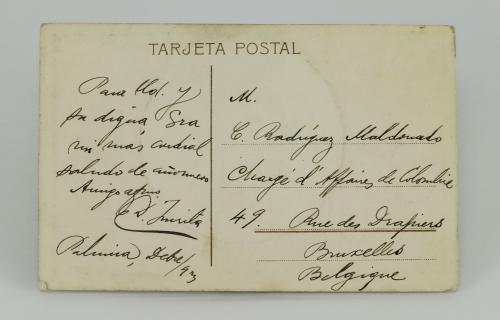 TARJETA POSTAL
Para Ud. y
su digna Sra
mi más cordial
saludo de año nuevo
Amigo afmo
Palmira, Dcbre/9
M.
C. Rodríguez Maldonado
Chargé d'Affaires de Colombie
49. Rue des Drapiers
Bruxelles
Belgique